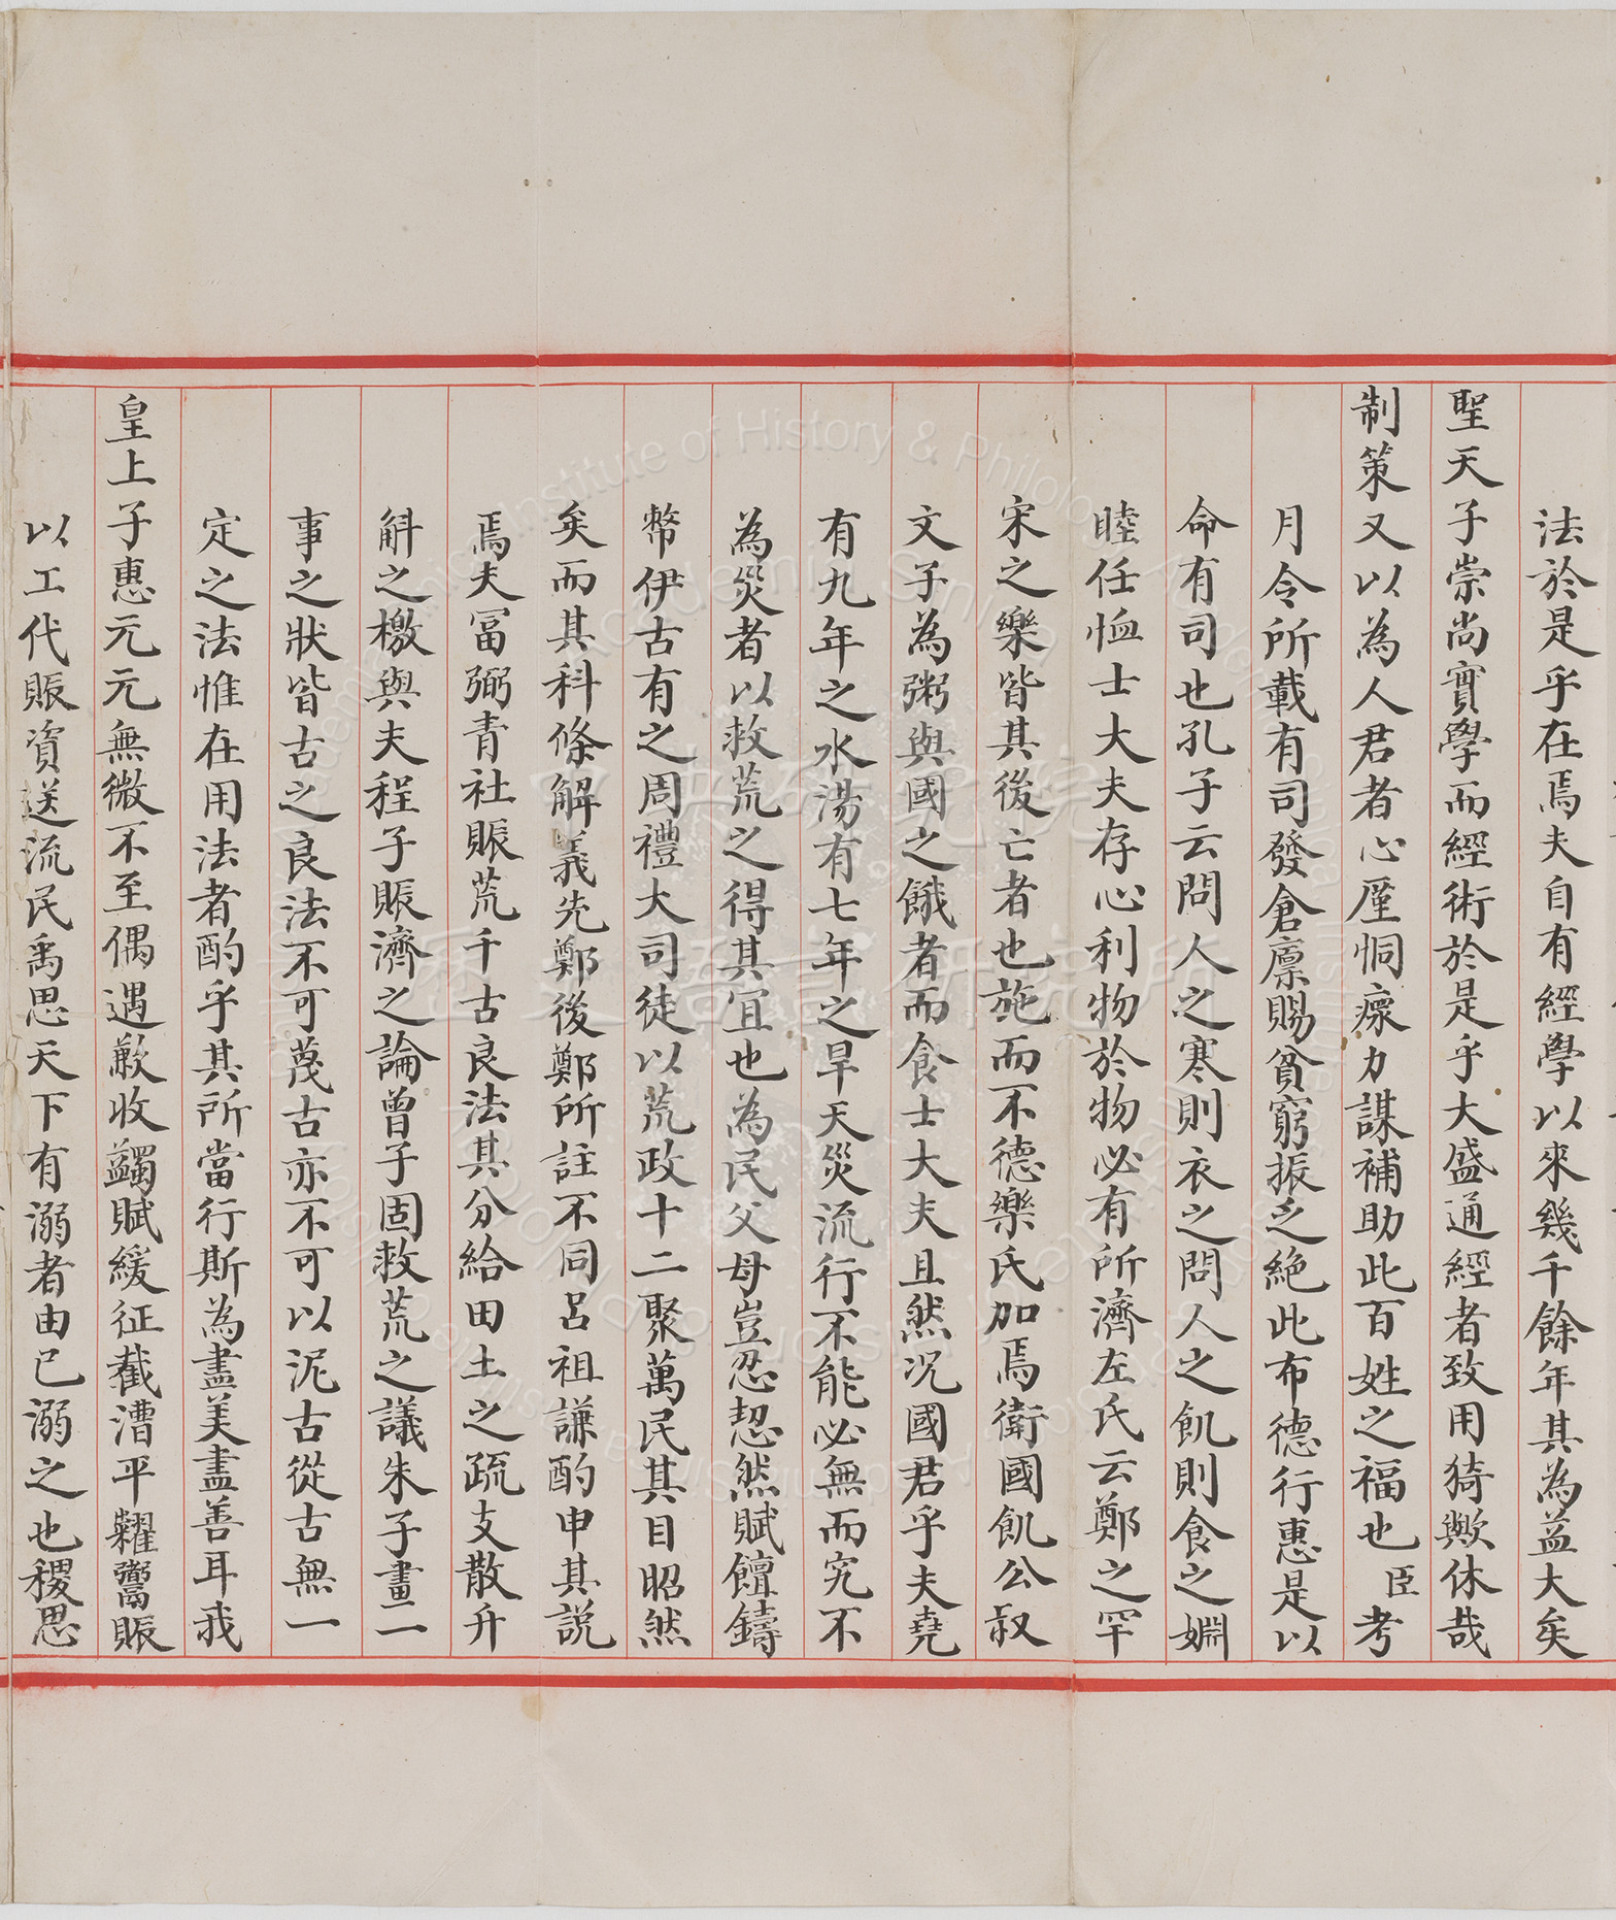 法於是乎在焉夫自有經學以來幾千餘年其為益大矣
聖天子崇尚實學而經術於是乎大盛通經者致用猗歟休哉
制策又以為人君者心廑恫瘝力謀補助此百姓之福也臣考
月令所載有司發倉廩賜貧窮振乏絕此布德行惠是以
命有司也孔子云問人之寒則衣之問人之飢則食之婣
睦任恤士大夫存心利物於物必有所濟左氏云鄭之罕
宋之樂皆其後亡者也施而不德樂氏加焉衛國飢公叔
文子為粥與國之餓者而食士大夫且然况國君乎夫堯
有九年之水湯有七年之旱天災流行不能必無而究不
為災者以救荒之得其宜也為民父母豈忍恝然賦饘鑄
幣伊古有之周禮大司徒以荒政十二聚萬民其目昭然
矣而其科條解義先鄭後鄭所註不同呂祖謙酌申其說
焉夫冨弼青社賑荒千古良法其分給田土之疏支散升
斛之檄與夫程子賑濟之論曾子固救荒之議朱子畫一
事之狀皆古之良法不可蔑古亦不可以泥古從古無一
定之法惟在用法者酌乎其所當行斯為盡美盡善耳我
皇上子惠元元無微不至偶遇歉收蠲賦緩征截漕平糶鬻賑
以工代賑資送流民禹思天下有溺者由已溺之也稷思
Institute of History & Philology
Academia Sinica
中央研究院
歷史語言研究所